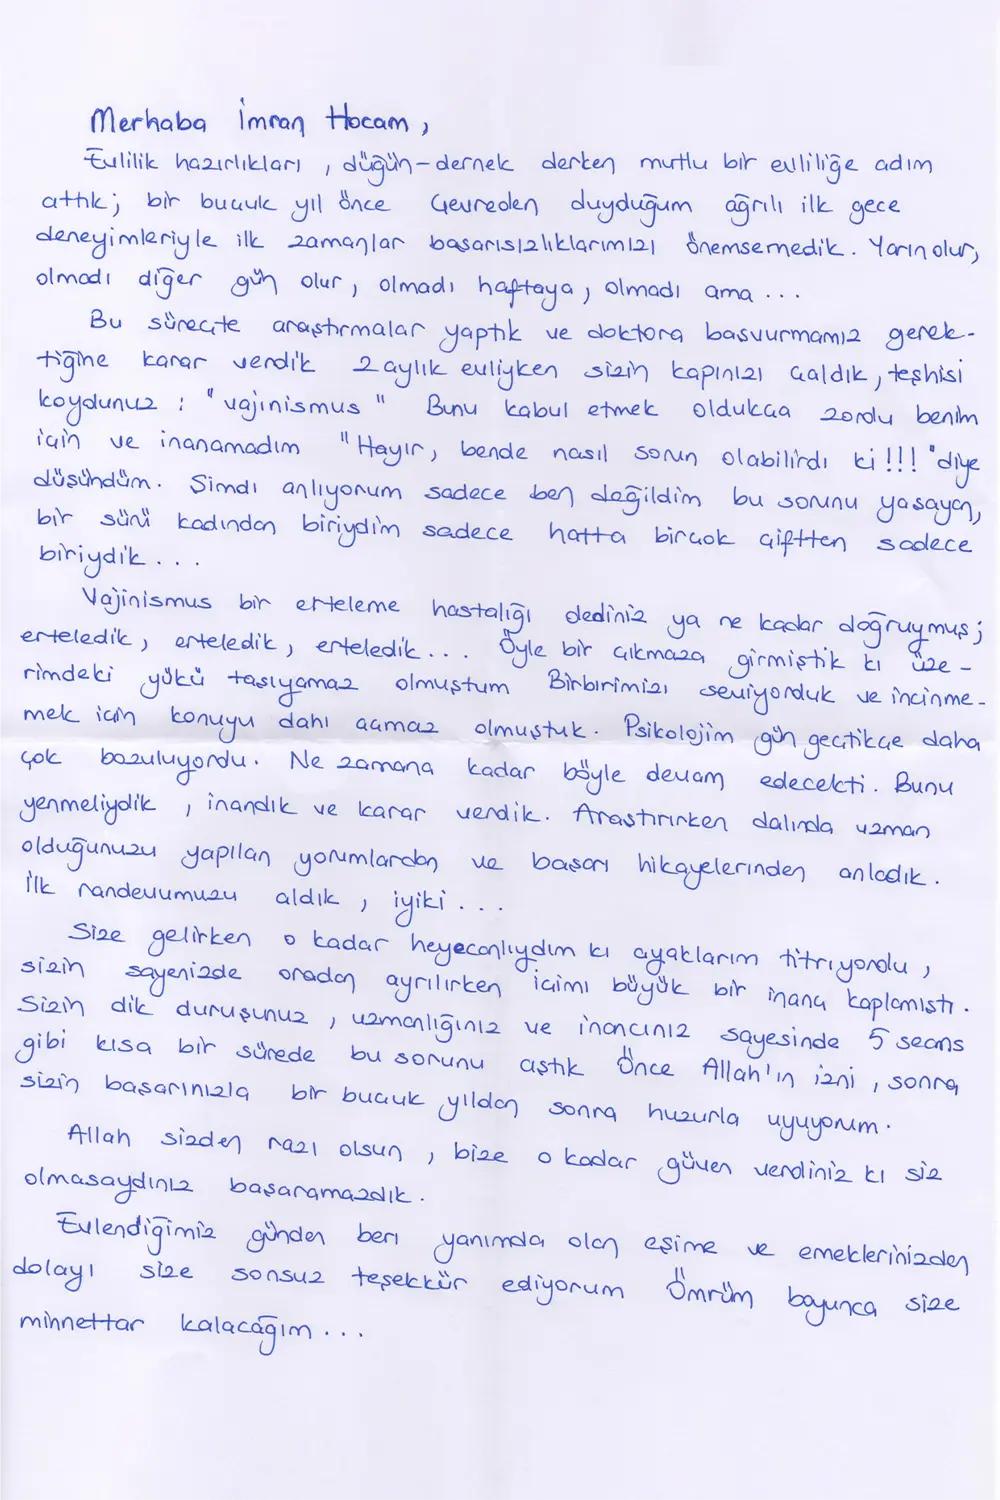 Merhaba İmran Hocam,
Evlilik hazırlıkları, düğün-dernek derken mutlu bir evliliğe adım
attık; bir buçuk yıl önce Çevreden duyduğum ağrılı ilk gece
deneyimleriyle ilk zamanlar başarısızlıklarımızı önemsemedik. Yarın olur,
olmadı diğer gün olur, olmadı haftaya, olmadı ama...
Bu süreçte araştırmalar yaptık ve doktora başvurmamız gerek-
tiğine karar verdik 2 aylık evliyken sizin kapınızı çaldık, teşhisi
koydunuz: "vajinismus" Bunu kabul etmek oldukça zordu benim
için ve inanamadım "Hayır, bende nasıl sorun olabilirdi ki!!!" diye
düşündüm. Şimdi anlıyorum sadece ben değildim bu sorunu yaşayan,
bir sürü kadından biriydim sadece hatta birçok çiftten sadece
biriydik...
Vajinismus bir erteleme hastalığı dediniz ya ne kadar doğruymuş;
erteledik, erteledik, erteledik... Öyle bir çıkmaza girmiştik ki üze-
rimdeki yükü taşıyamaz olmuştum Birbirimizi seviyorduk ve incinme-
mek için konuyu dahi açmaz olmuştuk. Psikolojim gün geçtikçe daha
çok bozuluyordu. Ne zamana kadar böyle devam edecekti. Bunu
yenmeliydik, inandık ve karar verdik. Araştırırken dalında uzman
olduğunuzu yapılan yorumlardan ve başarı hikayelerinden anladık.
İlk randevumuzu aldık, iyiki...
Size gelirken o kadar heyecanlıydım ki ayaklarım titriyordu,
sizin sayenizde oradan ayrılırken içimi büyük bir inanç kaplamıştı.
Sizin dik duruşunuz, uzmanlığınız ve inancınız sayesinde 5 seans
gibi kısa bir sürede bu sorunu aştık Önce Allah'ın izni, sonra
sizin başarınızla bir buçuk yıldan sonra huzurla uyuyorum.
Allah sizden razı olsun, bize o kadar güven verdiniz ki siz
olmasaydınız başaramazdık.
Evlendiğimiz günden beri yanımda olan eşime ve emeklerinizden
dolayı size sonsuz teşekkür ediyorum Ömrüm boyunca size
minnettar kalacağım...